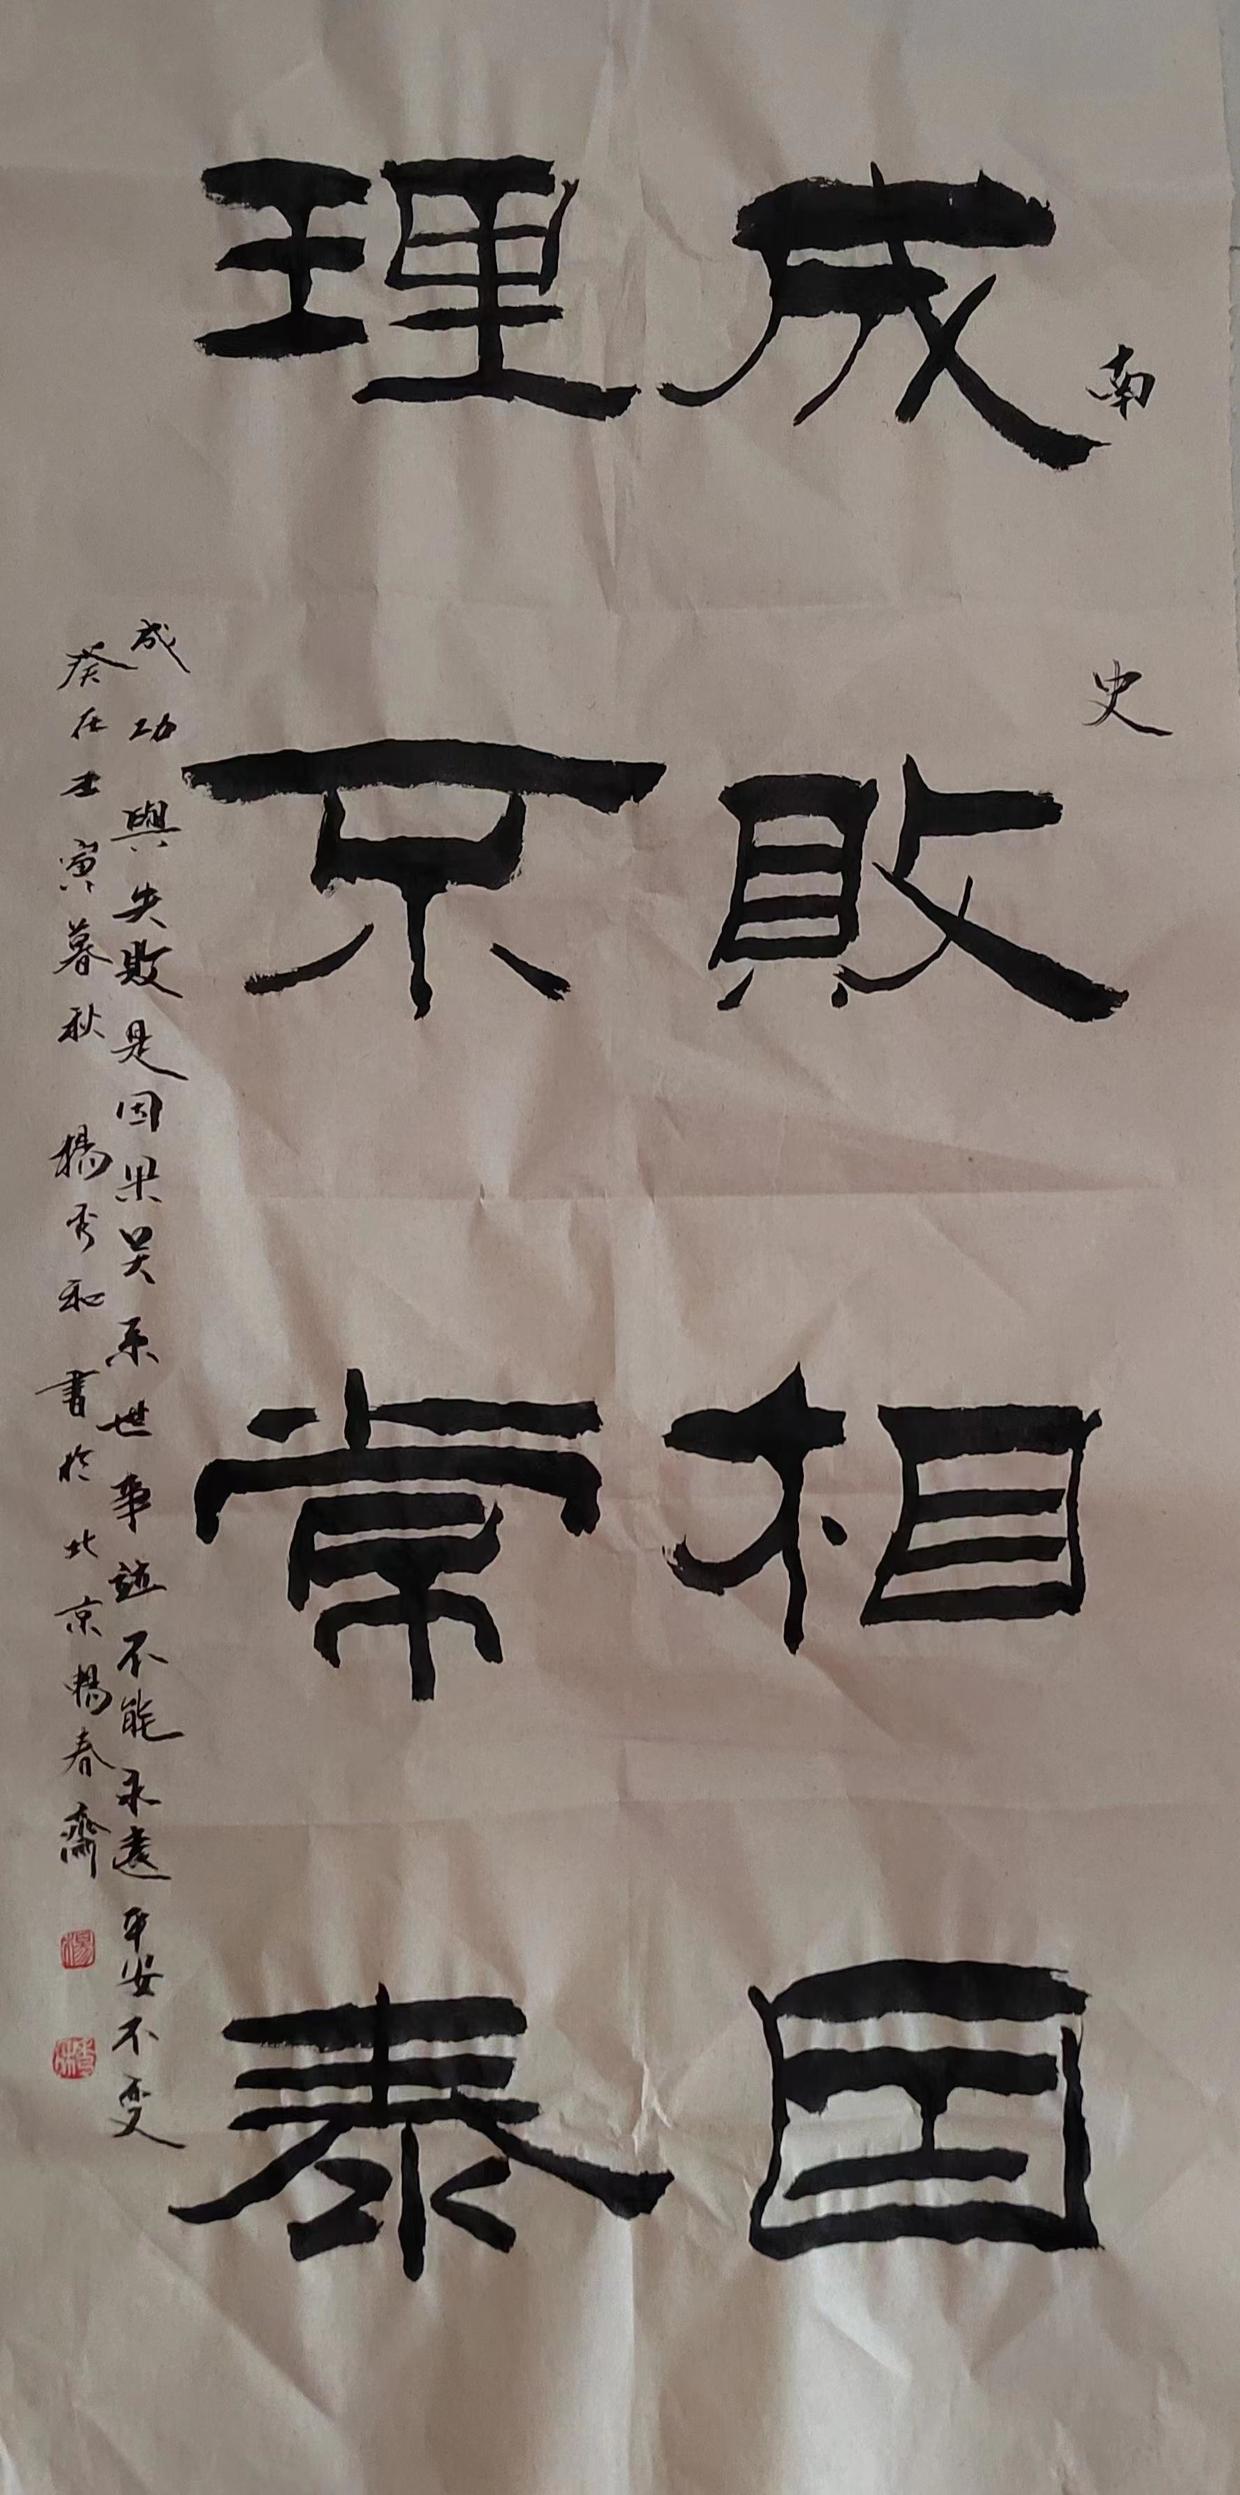 南史
成敗相因
理不常泰
成功與失敗是因果关系世事並不能永遠平安不变
癸在壬寅暮秋 楊秀和書於北京暢春齋